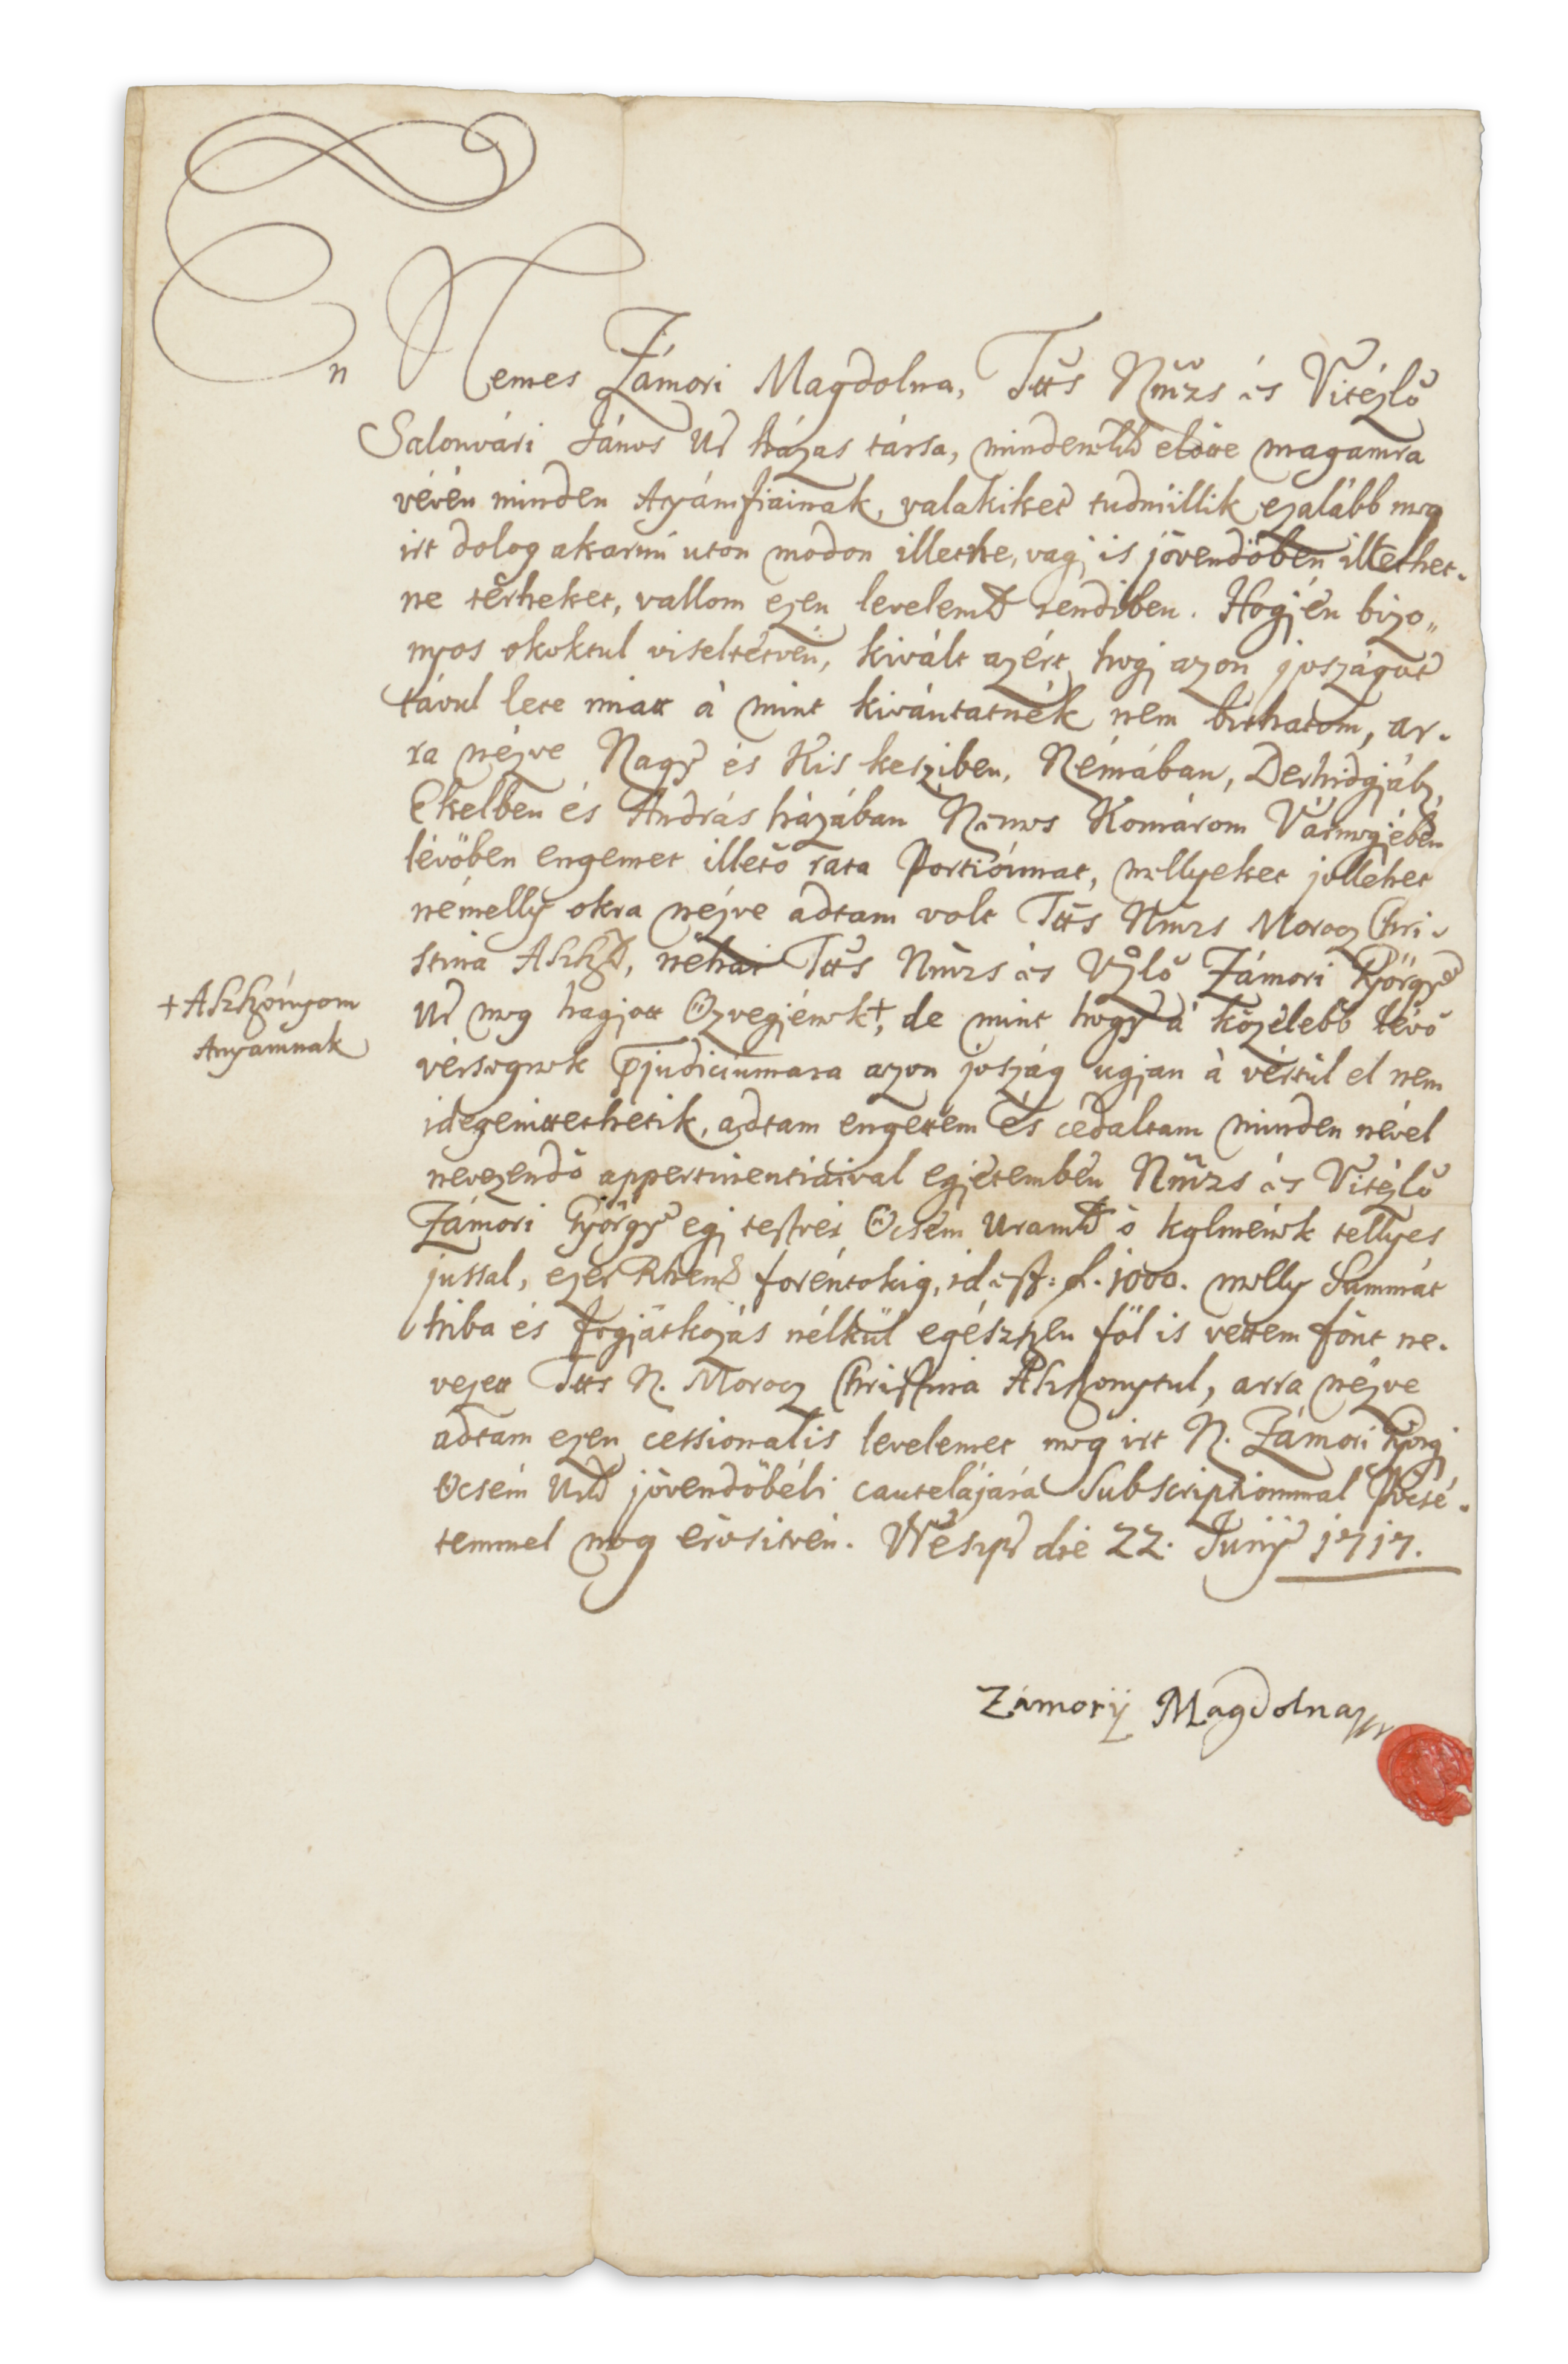 En Nemes Zámori Magdolna, Tttš Nmzs és Vitézlő
Salonvári János Ur házas társa, mindenek előre magamra
vévén minden Atyámfiainak, valakiket tudniillik ezalább meg
irt dolog akarmi uton módon illethe, vagj is jövendöben illethet-
ne terheket, vallom ezen levelem rendiben. Hogj én bizo„
nyos okoktul viseltetvén, kivált azért hogj azon joszágot
távul lete miatt à mint kivántatnék nem birhatom, ar-
ra nézve Nagy és Kis kesziben, Némában, Derhidgjáb,
Ekelben és András házában Nemes Komárom Vármegjében
lévöben engemet illető rata Portiómat, mellyeket jollehet
némelly okra nézve adtam volt Ttts Nmzs Morocz Chri-
stina Aszz, néhai Ttts Nmzs és Vzlő Zámori György
Ur meg hagjott Özvegjének+, de mint hogy à közelebb lévő
+ Aszszonyom
Anyamnak
vérségnek pjudiciumara azon joszág ugjan à vértül el nem
idegenittethetik, adtam engettem és cédaltam minden nével
nevezendő appertinentiáival egjetemben Nmzs és Vitézlő
Zámori György egj testvér Öcsém Uram ő kglmének tellyes
jussal, ezer Rhens foréntokig, id est: f. 1000. melly Summát
hiba és fogjatkozás nélkül egészszen föl is vettem fönt ne-
vezett Ttts N. Morocz Christina Aszszonytul, arra nézve
adtam ezen cessionalis levelemet meg irt N. Zámori Györgj
Öcsém Ur jövendöbéli cautelájára Subscriptiommal Pecsé-
temmel meg erösitvén. Weszpr die 22. Junij 1717.
Zámorij Magdolna